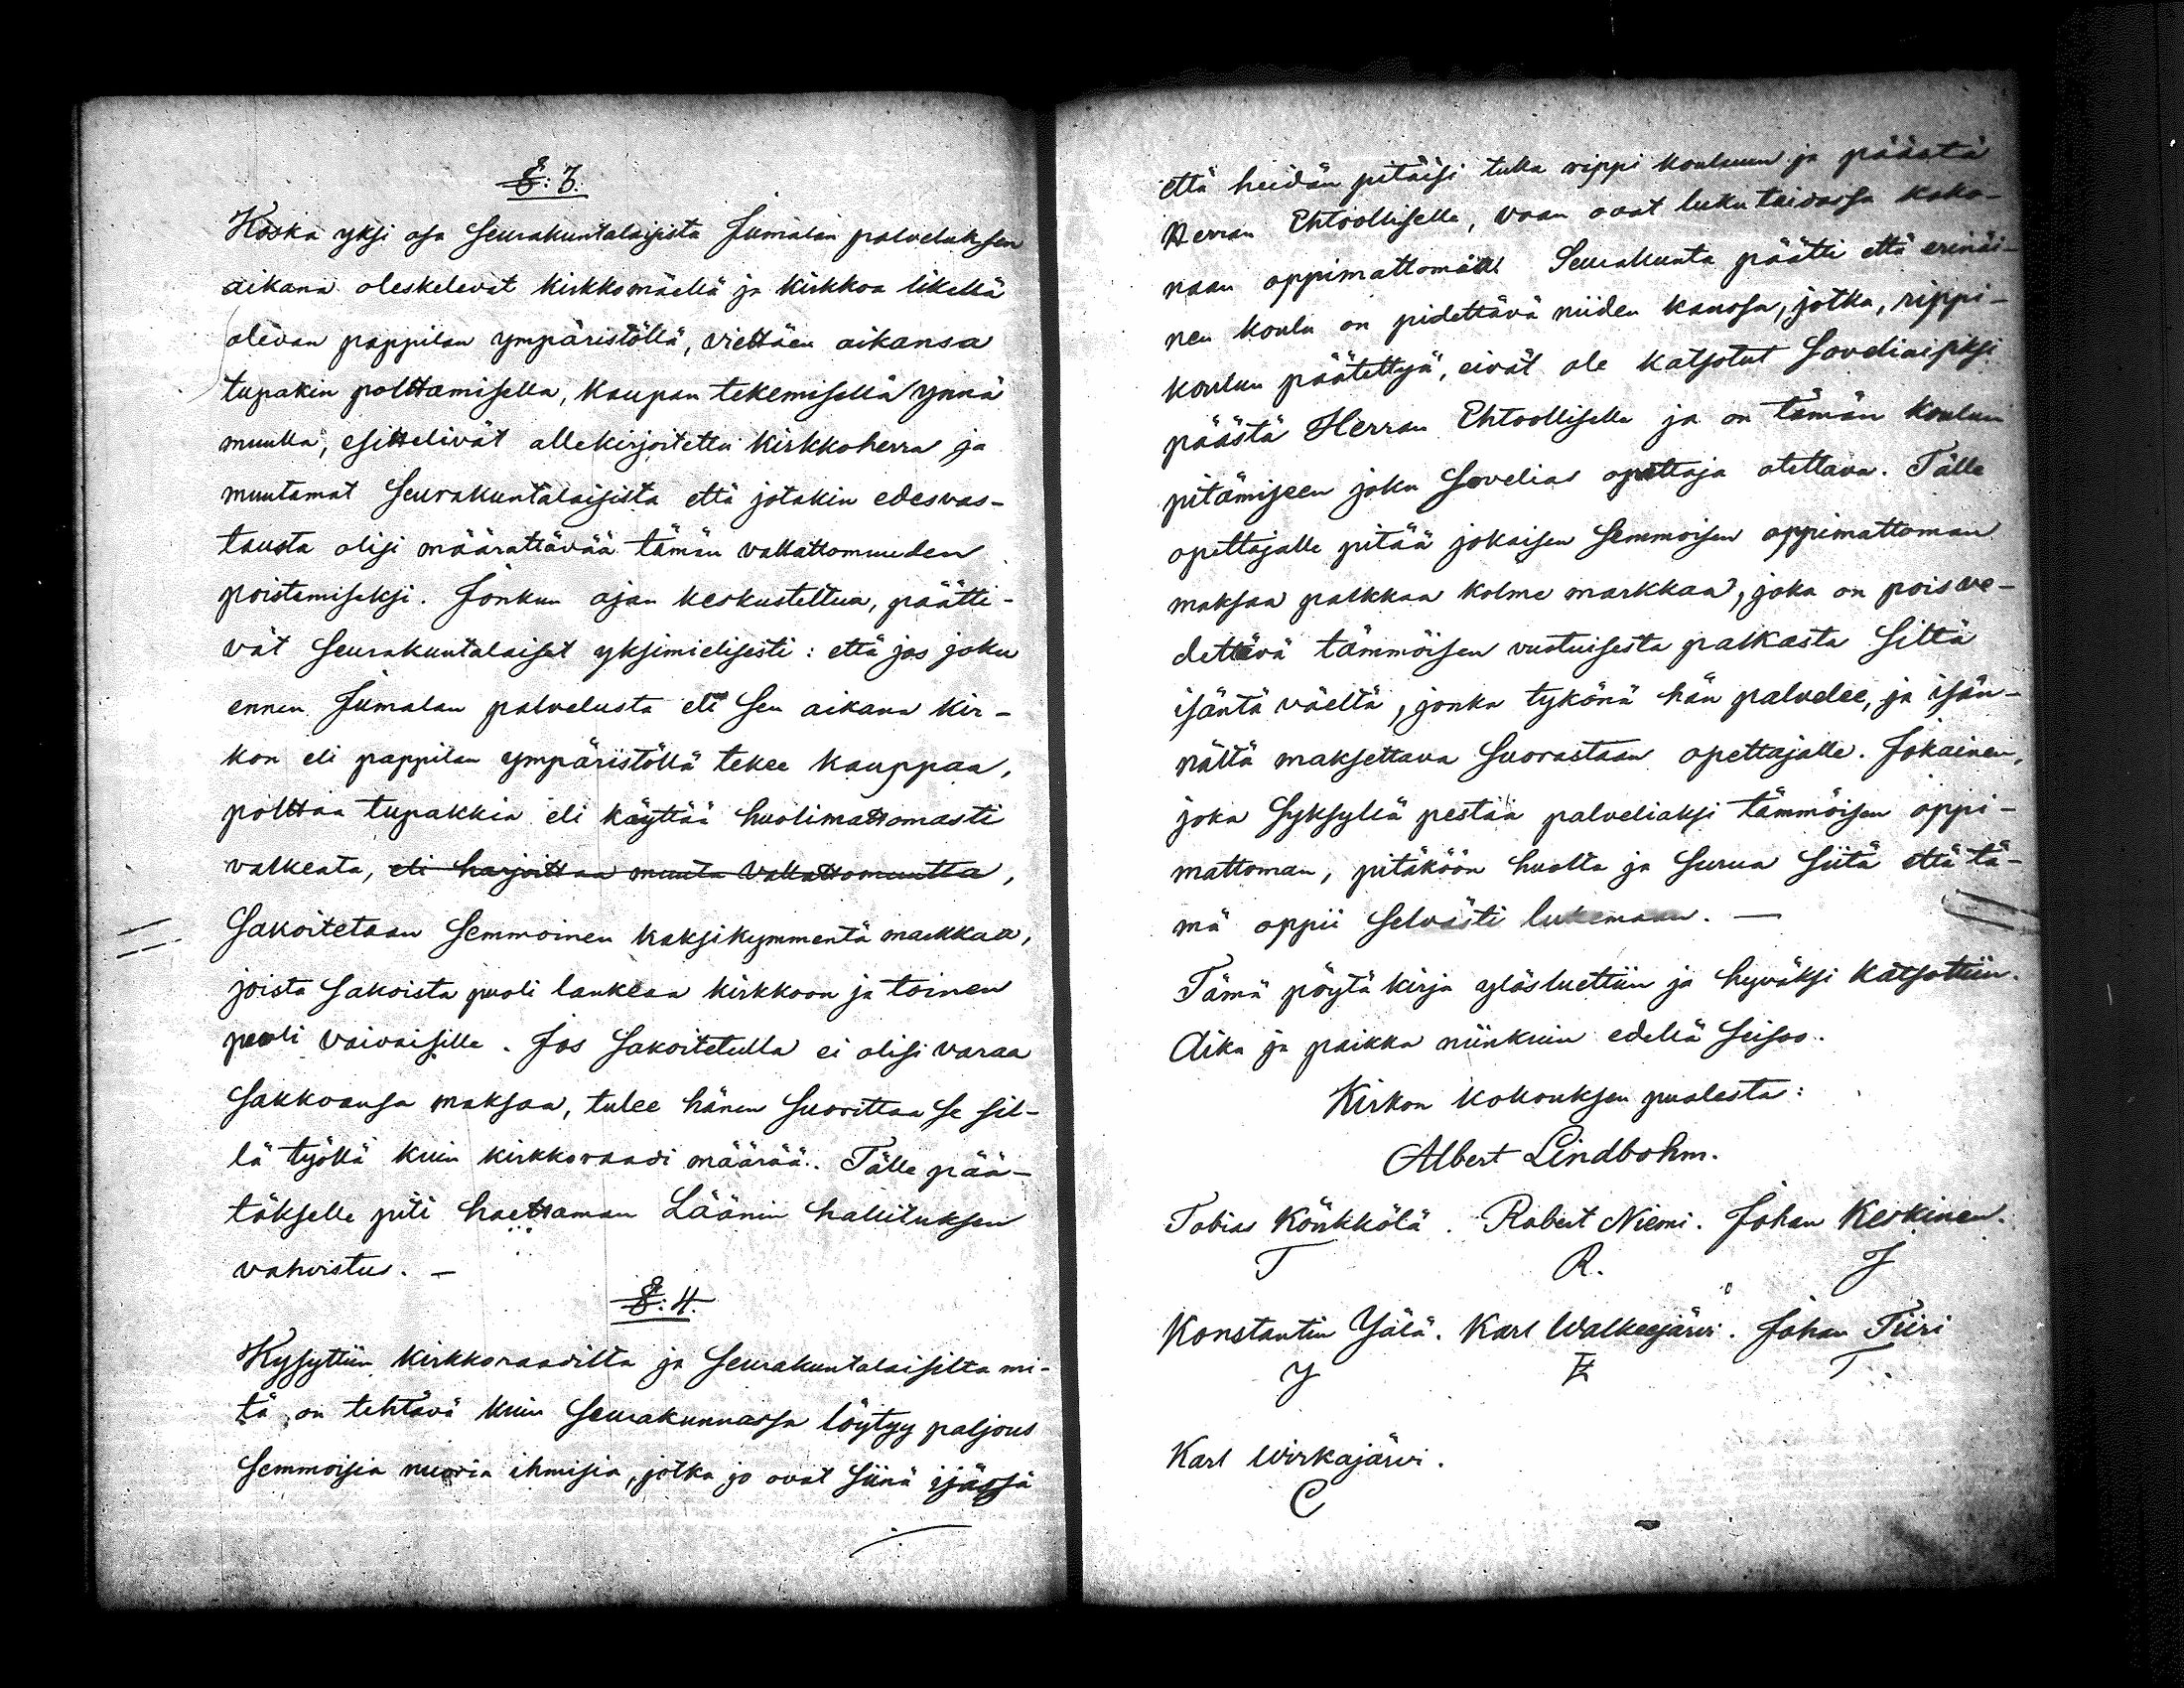 §: 3.
Koska yksi osa Seurakuntalaisista Jumalan palveluksen
aikana oleskelevat kirkkomäellä ja kirkkoa likellä
olevan pappilan ympäristöllä, viettäen aikansa
tupakin polttamisella, kaupan tekemisellä ynnä
muulla, esittelivät allekirjoitettu kirkkoherra ja
muutamat Seurakuntalaisista että jotakin edesvas-
tausta olisi määrättävää tämän vallattomuuden
poistamiseksi. Jonkun ajan keskusteltua, päätti-
vät Seurakuntalaiset yksimielisesti: että jos joku
ennen Jumalan palvelusta eli Sen aikana kir-
kon eli pappilan ympäristöllä tekee kauppaa,
polttaa tupakkia eli käyttää huolimattomasti
valkeata, eli harjoittaa muuta vallattomuutta,
Sakoitetaan Semmoinen kaksikymmentä markkaa,
joista Sakoista puoli lankeaa kirkkoon ja toinen
puoli vaivaisille. Jos Sakoitetulla ei olisi varaa
Sakkoansa maksaa, tulee hänen Suorittaa Se Sil-
lä työllä kuin kirkkoraadi määrää. Tälle pää-
tökselle piti haettaman Läänin hallituksen
vahvistus. —
§: 4.
Kysyttiin kirkkoraadilta ja Seurakuntalaisilta mi-
tä on tehtävä kuin Seurakunnassa löytyy paljous
Semmoisia nuoria ihmisiä, jotka jo ovat Siinä ijässä
että heidän pitäisi tulla rippi kouluun ja päästä
Herran Ehtoolliselle, vaan ovat luku taidossa koko-
naan oppimattomat. Seurakunta päätti että erinäi-
nen koulu on pidettävä niiden kanssa, jotka, rippi-
koulun päätettyä, eivät ole katsotut Soveliaisiksi
päästä Herran Ehtoolliselle ja on tämän koulun
pitämiseen joku Sovelias opettaja otettava. Tälle
opettajalle pitää jokaisen Semmoisen oppimattoman
maksaa palkkaa kolme markkaa, joka on pois ve-
dettävä tämmöisen vuotuisesta palkasta Siltä
isäntä väeltä, jonka tykönä hän palvelee, ja isän-
nältä maksettava Suorastaan opettajalle. Jokainen,
joka Syksyllä pestää palveliaksi tämmöisen oppi-
mattoman, pitäköön huolta ja Surua Siitä että tä-
mä oppii Selvästi lukemaan. —
Tämä pöytä kirja ylösluettiin ja hyväksi katsottiin.
Aika ja paikka niinkuin edellä Seisoo.
Kirkon kokouksen puolesta:
Albert Lindbohm.
Tobias Könkkölä. Robert Niemi. Johan Keskinen.
T R. J
Konstantin Yälä. Karl Walkeejärvi. Johan Tiiri
Y T.
Karl Wirkajärvi.
C